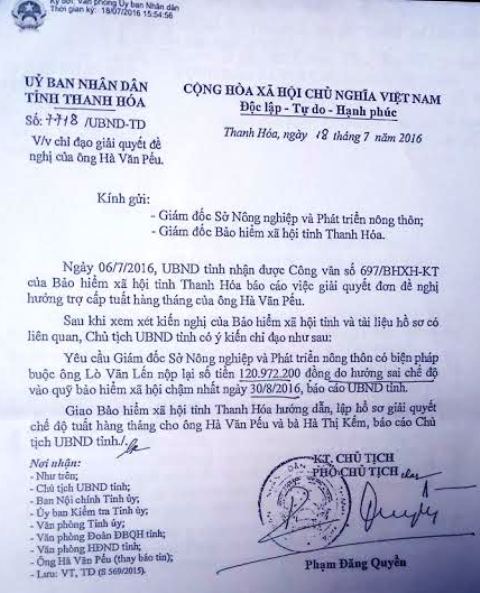 Ký bởi: Văn phòng Ủy ban Nhân dân
Thời gian ký: 18/07/2016 15:54:56
UỶ BAN NHÂN DÂN
TỈNH THANH HÓA
Số: 7718 /UBND-TD
V/v chỉ đạo giải quyết đề
nghị của ông Hà Văn Pếu.
CỘNG HÒA XÃ HỘI CHỦ NGHĨA VIỆT NAM
Độc lập - Tự do - Hạnh phúc
Thanh Hóa, ngày 18 tháng 7 năm 2016
Kính gửi:
- Giám đốc Sở Nông nghiệp và Phát triển nông thôn;
- Giám đốc Bảo hiểm xã hội tỉnh Thanh Hóa.
Ngày 06/7/2016, UBND tỉnh nhận được Công văn số 697/BHXH-KT
của Bảo hiểm xã hội tỉnh Thanh Hóa báo cáo việc giải quyết đơn đề nghị
hưởng trợ cấp tuất hàng tháng của ông Hà Văn Pếu.
Sau khi xem xét kiến nghị của Bảo hiểm xã hội tỉnh và tài liệu hồ sơ có
liên quan, Chủ tịch UBND tỉnh có ý kiến chỉ đạo như sau:
Yêu cầu Giám đốc Sở Nông nghiệp và Phát triển nông thôn có biện pháp
buộc ông Lò Văn Lến nộp lại số tiền 120.972.200 đồng do hưởng sai chế độ
vào quỹ bảo hiểm xã hội chậm nhất ngày 30/8/2016, báo cáo UBND tỉnh.
Giao Bảo hiểm xã hội tỉnh Thanh Hóa hướng dẫn, lập hồ sơ giải quyết
chế độ tuất hàng tháng cho ông Hà Văn Pếu và bà Hà Thị Kểm, báo cáo Chủ
tịch UBND tỉnh./.
Nơi nhận:
- Như trên;
- Chủ tịch UBND tỉnh;
- Ban Nội chính Tỉnh ủy;
- Ủy ban Kiểm tra Tỉnh ủy;
- Văn phòng Tỉnh ủy;
- Văn phòng Đoàn ĐBQH tỉnh;
- Văn phòng HĐND tỉnh;
- Ông Hà Văn Pếu (thay báo tin);
- Lưu: VT, TD (S 569/2015).
KT. CHỦ TỊCH
PHÓ CHỦ TỊCH
Phạm Đăng Quyền